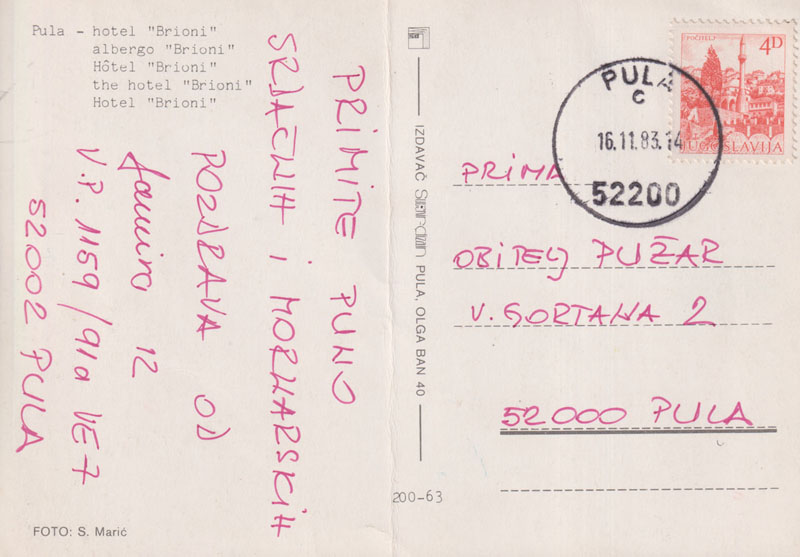 Pula - hotel "Brioni"
albergo "Brioni"
Hôtel "Brioni"
the hotel "Brioni"
Hotel "Brioni"
PRIMITE PUNO
SRDAČNIH I MORNARSKIH
POZDRAVA OD
12
V.P. 1159/91a VE-7
52002 PULA
FOTO: S. Marić
IZDAVAČ PULA, OLGA BAN 40
200-63
POČITELJ
4D
JUGOSLAVIJA
PULA
C
16.11.83.14
52200
PRIMA
OBITELJ PUŽAR
V. GORTANA 2
52000 PULA